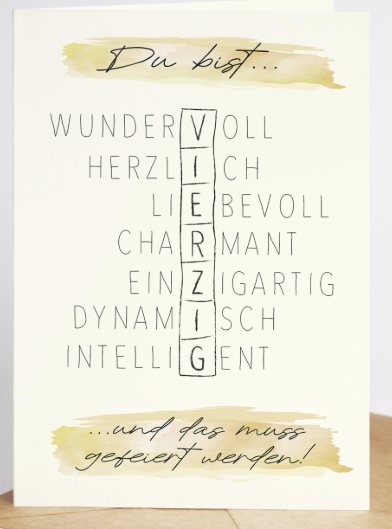 Du bist...
WUNDERVOLL
HERZLICH
LIEBEVOLL
CHARMANT
EINZIGARTIG
DYNAMISCH
INTELLIGENT
...und das muss
gefeiert werden!